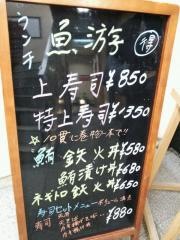 ランチ
魚游
得
上寿司 ¥850
特上寿司 ¥1350
☆10貫に巻物一本で!!
鮪 鉄火丼 ¥580
鮪漬け丼 ¥680
ネギトロ鉄火丼 ¥650
寿司セットメニュー
寿司
¥880